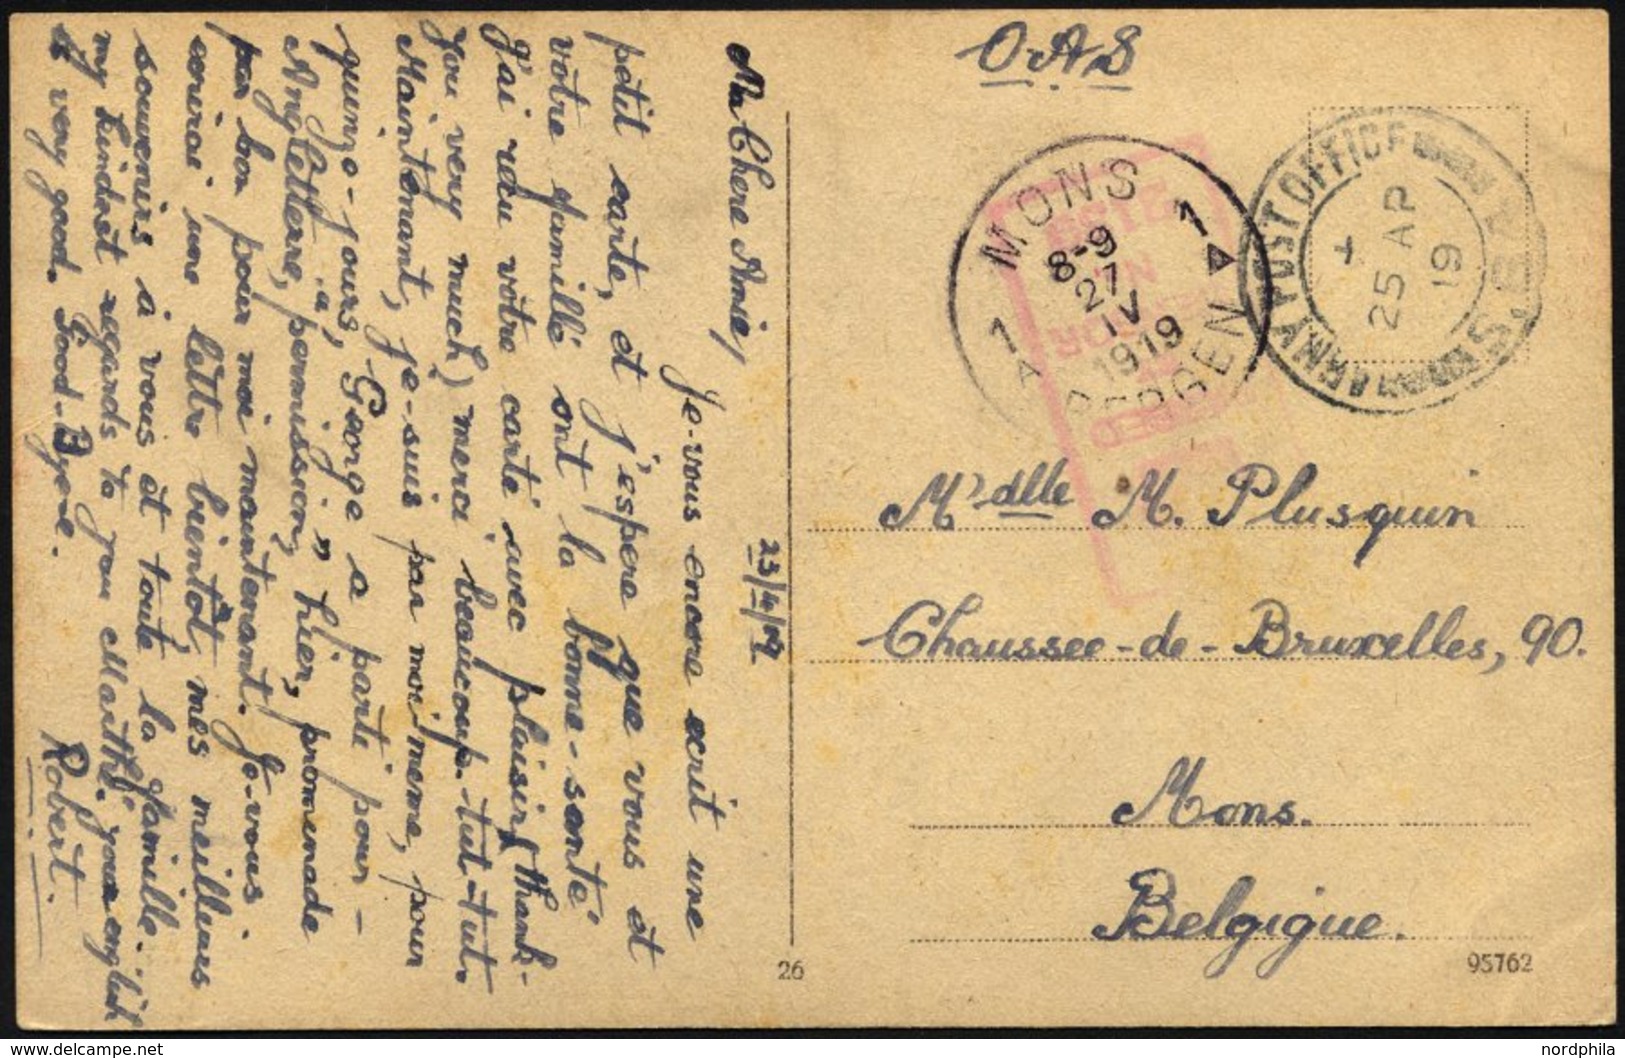 O.A.S
Ma Chere Amie,
23/4/19
Je-vous encore ecrit une
petit carte, et j'espere que vous et
vôtre famille sont la bonne-santé
J'ai reçu vôtre carte avec plaisir (thank-
you very much) merci beaucoup. tut-tut.
Maintenant, je-suis par moi meme, pour
quinze-jours, George a parti pour-
Angleterre, permission, hier, promenade
"a j'", 
pas bon pour moi maintenant. Je-vous
ecrirai une lettre bientôt, mes meilleurs
souvenirs à vous et toute la famille.
my kindest regards to you Marthe. your english
is very good. Good-Bye.
Robert.
26
MONS
1 1
A A
8-9
27
IV
1919
BERGEN
ARMY POST OFFICE
25 AP
19
S.
M'dlle M. Plusquin
Chaussee-de-Bruxelles, 90.
Mons.
Belgique.
95762
delcampe.net
nordphila